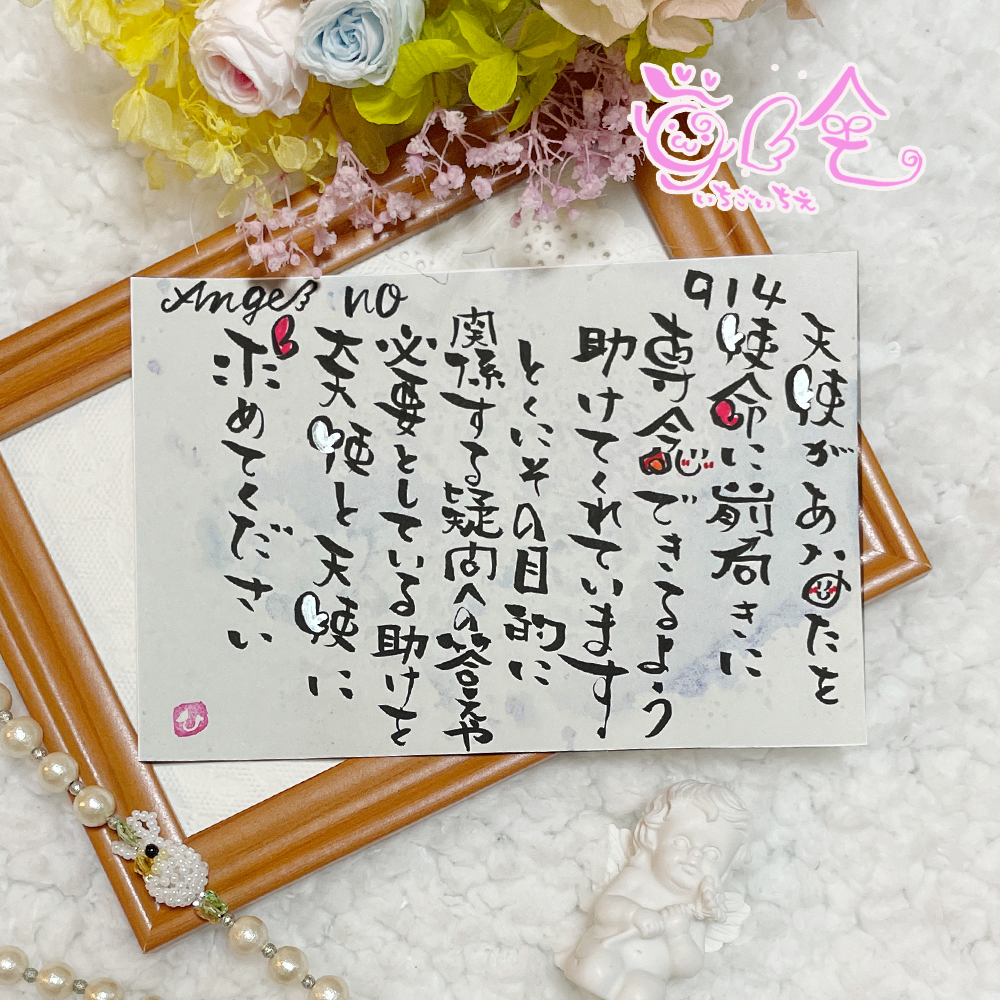 Angel no 914
天使があなたを
使命に前向きに
専念できるよう
助けてくれています
とくにその目的に
関係する疑問への答えや
必要としている助けを
大天使と天使に
求めてください
いちごいちえ